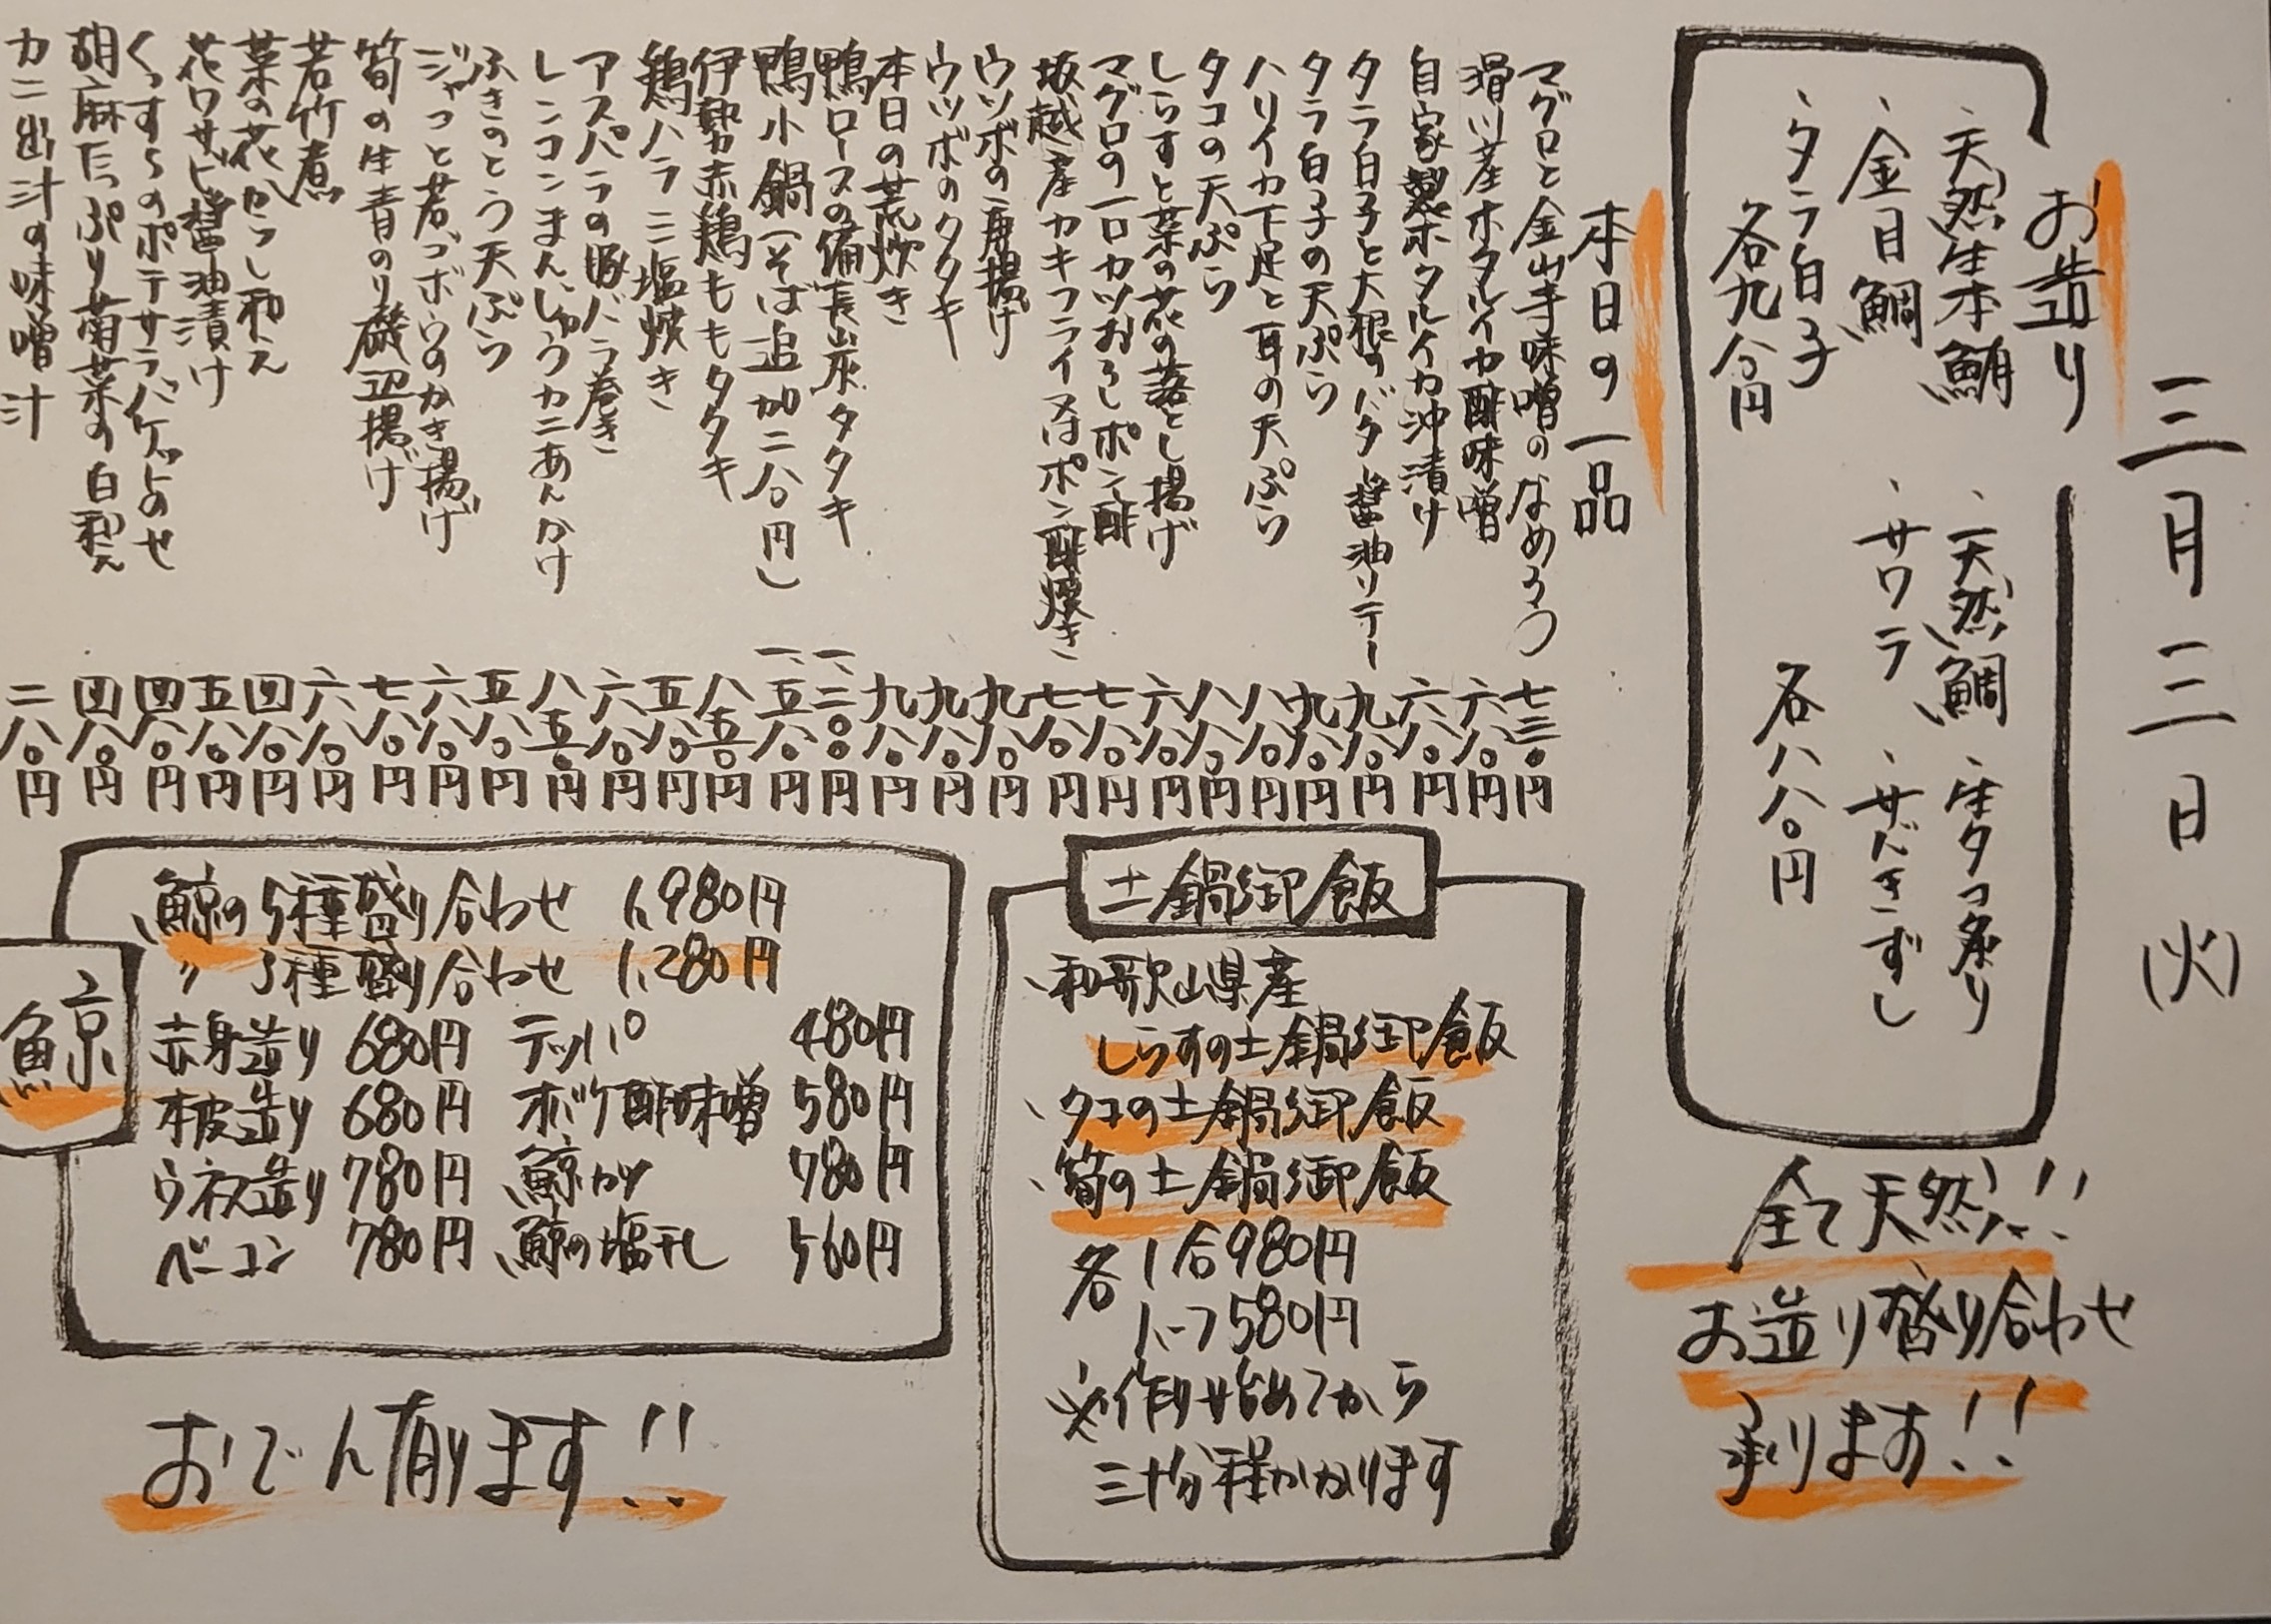 三月三日(火)
お造り
、天然生本鮪
、金目鯛
、タラ白子
各九八〇円
、天然鯛
、生タコ炙り
、サワラ
、サバきずし
各八八〇円
全て天然!!
お造り盛り合わせ
承ります!!
本日の一品
マグロと金山寺味噌のなめろう 七三〇円
滑川産ホタルイカ酢味噌 六八〇円
自家製ホタルイカ沖漬け 六八〇円
タラ白子と大根のバター醤油ソテー 九八〇円
タラ白子の天ぷら 九八〇円
ハリイカ下足と耳の天ぷら 八八〇円
タコの天ぷら 八八〇円
しらすと菜の花の落とし揚げ 六八〇円
マグロの一口カツおろしポン酢 七八〇円
坂越産カキフライ又はポン酢焼き 七八〇円
ウツボの唐揚げ 九八〇円
ウツボのタタキ 九八〇円
本日の荒炊き 九八〇円
鴨ロースの備長炭タタキ 一、二〇〇円
鴨小鍋(そば追加二八〇円) 一、五八〇円
伊勢赤鶏ももタタキ 八五〇円
鶏ハラミ塩焼き 五八〇円
アスパラの豚バラ巻き 六八〇円
レンコンまんじゅうカニあんかけ 八五〇円
ふきのとう天ぷら 五八〇円
ジャコと若ゴボウのかき揚げ 六八〇円
筍の生青のり磯辺揚げ 七八〇円
若竹煮 六八〇円
菜の花からし和え 四八〇円
花ワサビ醤油漬け 五八〇円
くずし のポテサラバケットのせ 四八〇円
胡麻たっぷり菊菜の白和え 四八〇円
カニ出汁の味噌汁 二八〇円
土鍋御飯
、和歌山県産
しらすの土鍋御飯
、タコの土鍋御飯
、筍の土鍋御飯
各 1合980円
ハーフ580円
※作り始めてから
三十分程かかります
鯨
、鯨の5種盛り合わせ 1,980円
〃 3種盛り合わせ 1,280円
赤身造り 680円 テッパ 480円
本皮造り 680円 オバケ酢味噌 580円
ウネス造り 780円 鯨カツ 780円
ベーコン 780円 鯨の塩干し 560円
おでん有ります!!